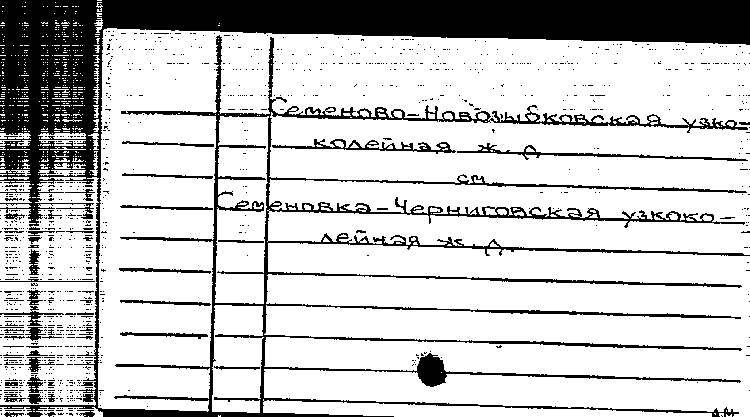 Семеново-Новозыбковская узко-
колейная ж. д
см.
Семеновка-Черниговская узкоко-
лейная ж.д.
ДМ